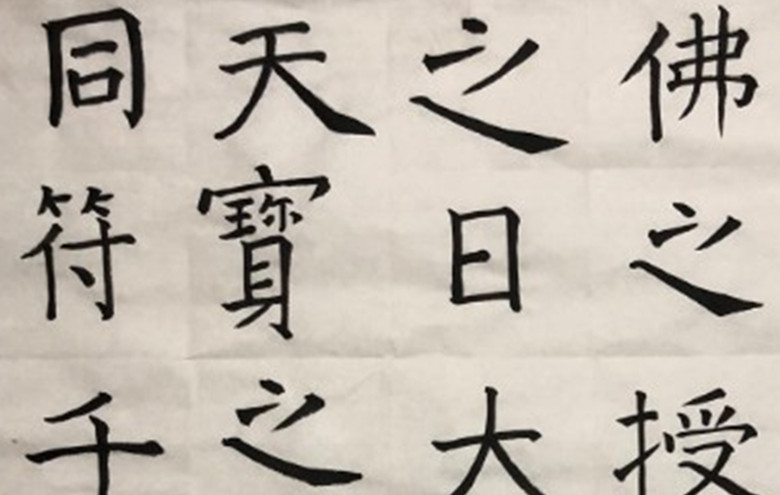 佛之授
之日大
天寶之
同符千